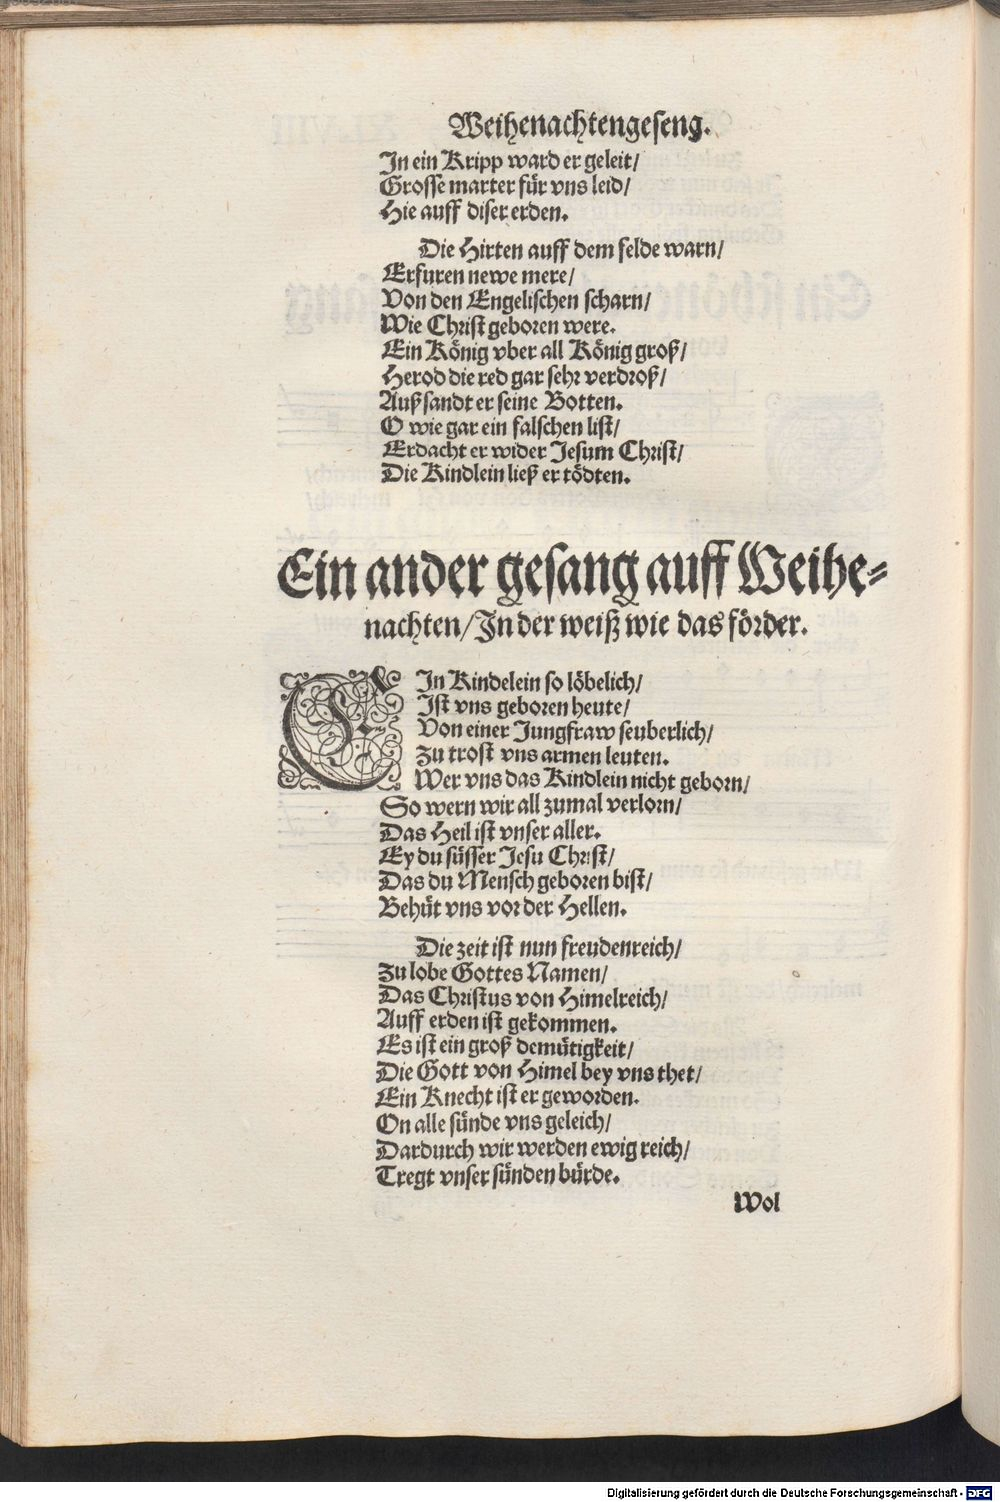 Weihenachtengeseng.
In ein Kripp ward er geleit/
Grosse marter für vns leid/
Hie auff diser erden.
Die Hirten auff dem felde warn/
Erfuren newe mere/
Von den Engelischen scharn/
Wie Christ geboren were.
Ein König vber all König groß/
Herod die red gar sehr verdroß/
Außsandt er seine Botten.
O wie gar ein falschen list/
Erdacht er wider Jesum Christ/
Die Kindlein ließ er tödten.
Ein ander gesang auff Weihe-
nachten/In der weiß wie das förder.
EIn Kindelein so löbelich/
Ist vns geboren heute/
Von einer Jungfraw seuberlich/
Zu trost vns armen leuten.
Wer vns das Kindlein nicht geborn/
So wern wir all zumal verlorn/
Das Heil ist vnser aller.
Ey du süsser Jesu Christ/
Das du Mensch geboren bist/
Behüt vns vor der Hellen.
Die zeit ist nun freudenreich/
Zu lobe Gottes Namen/
Das Christus von Himelreich/
Auff erden ist gekommen.
Es ist ein groß demütigkeit/
Die Gott von Himel bey vns thet/
Ein Knecht ist er geworden.
On alle sünde vns geleich/
Dardurch wir werden ewig reich/
Tregt vnser sünden bürde.
Wol
Digitalisierung gefördert durch die Deutsche Forschungsgemeinschaft - DFG